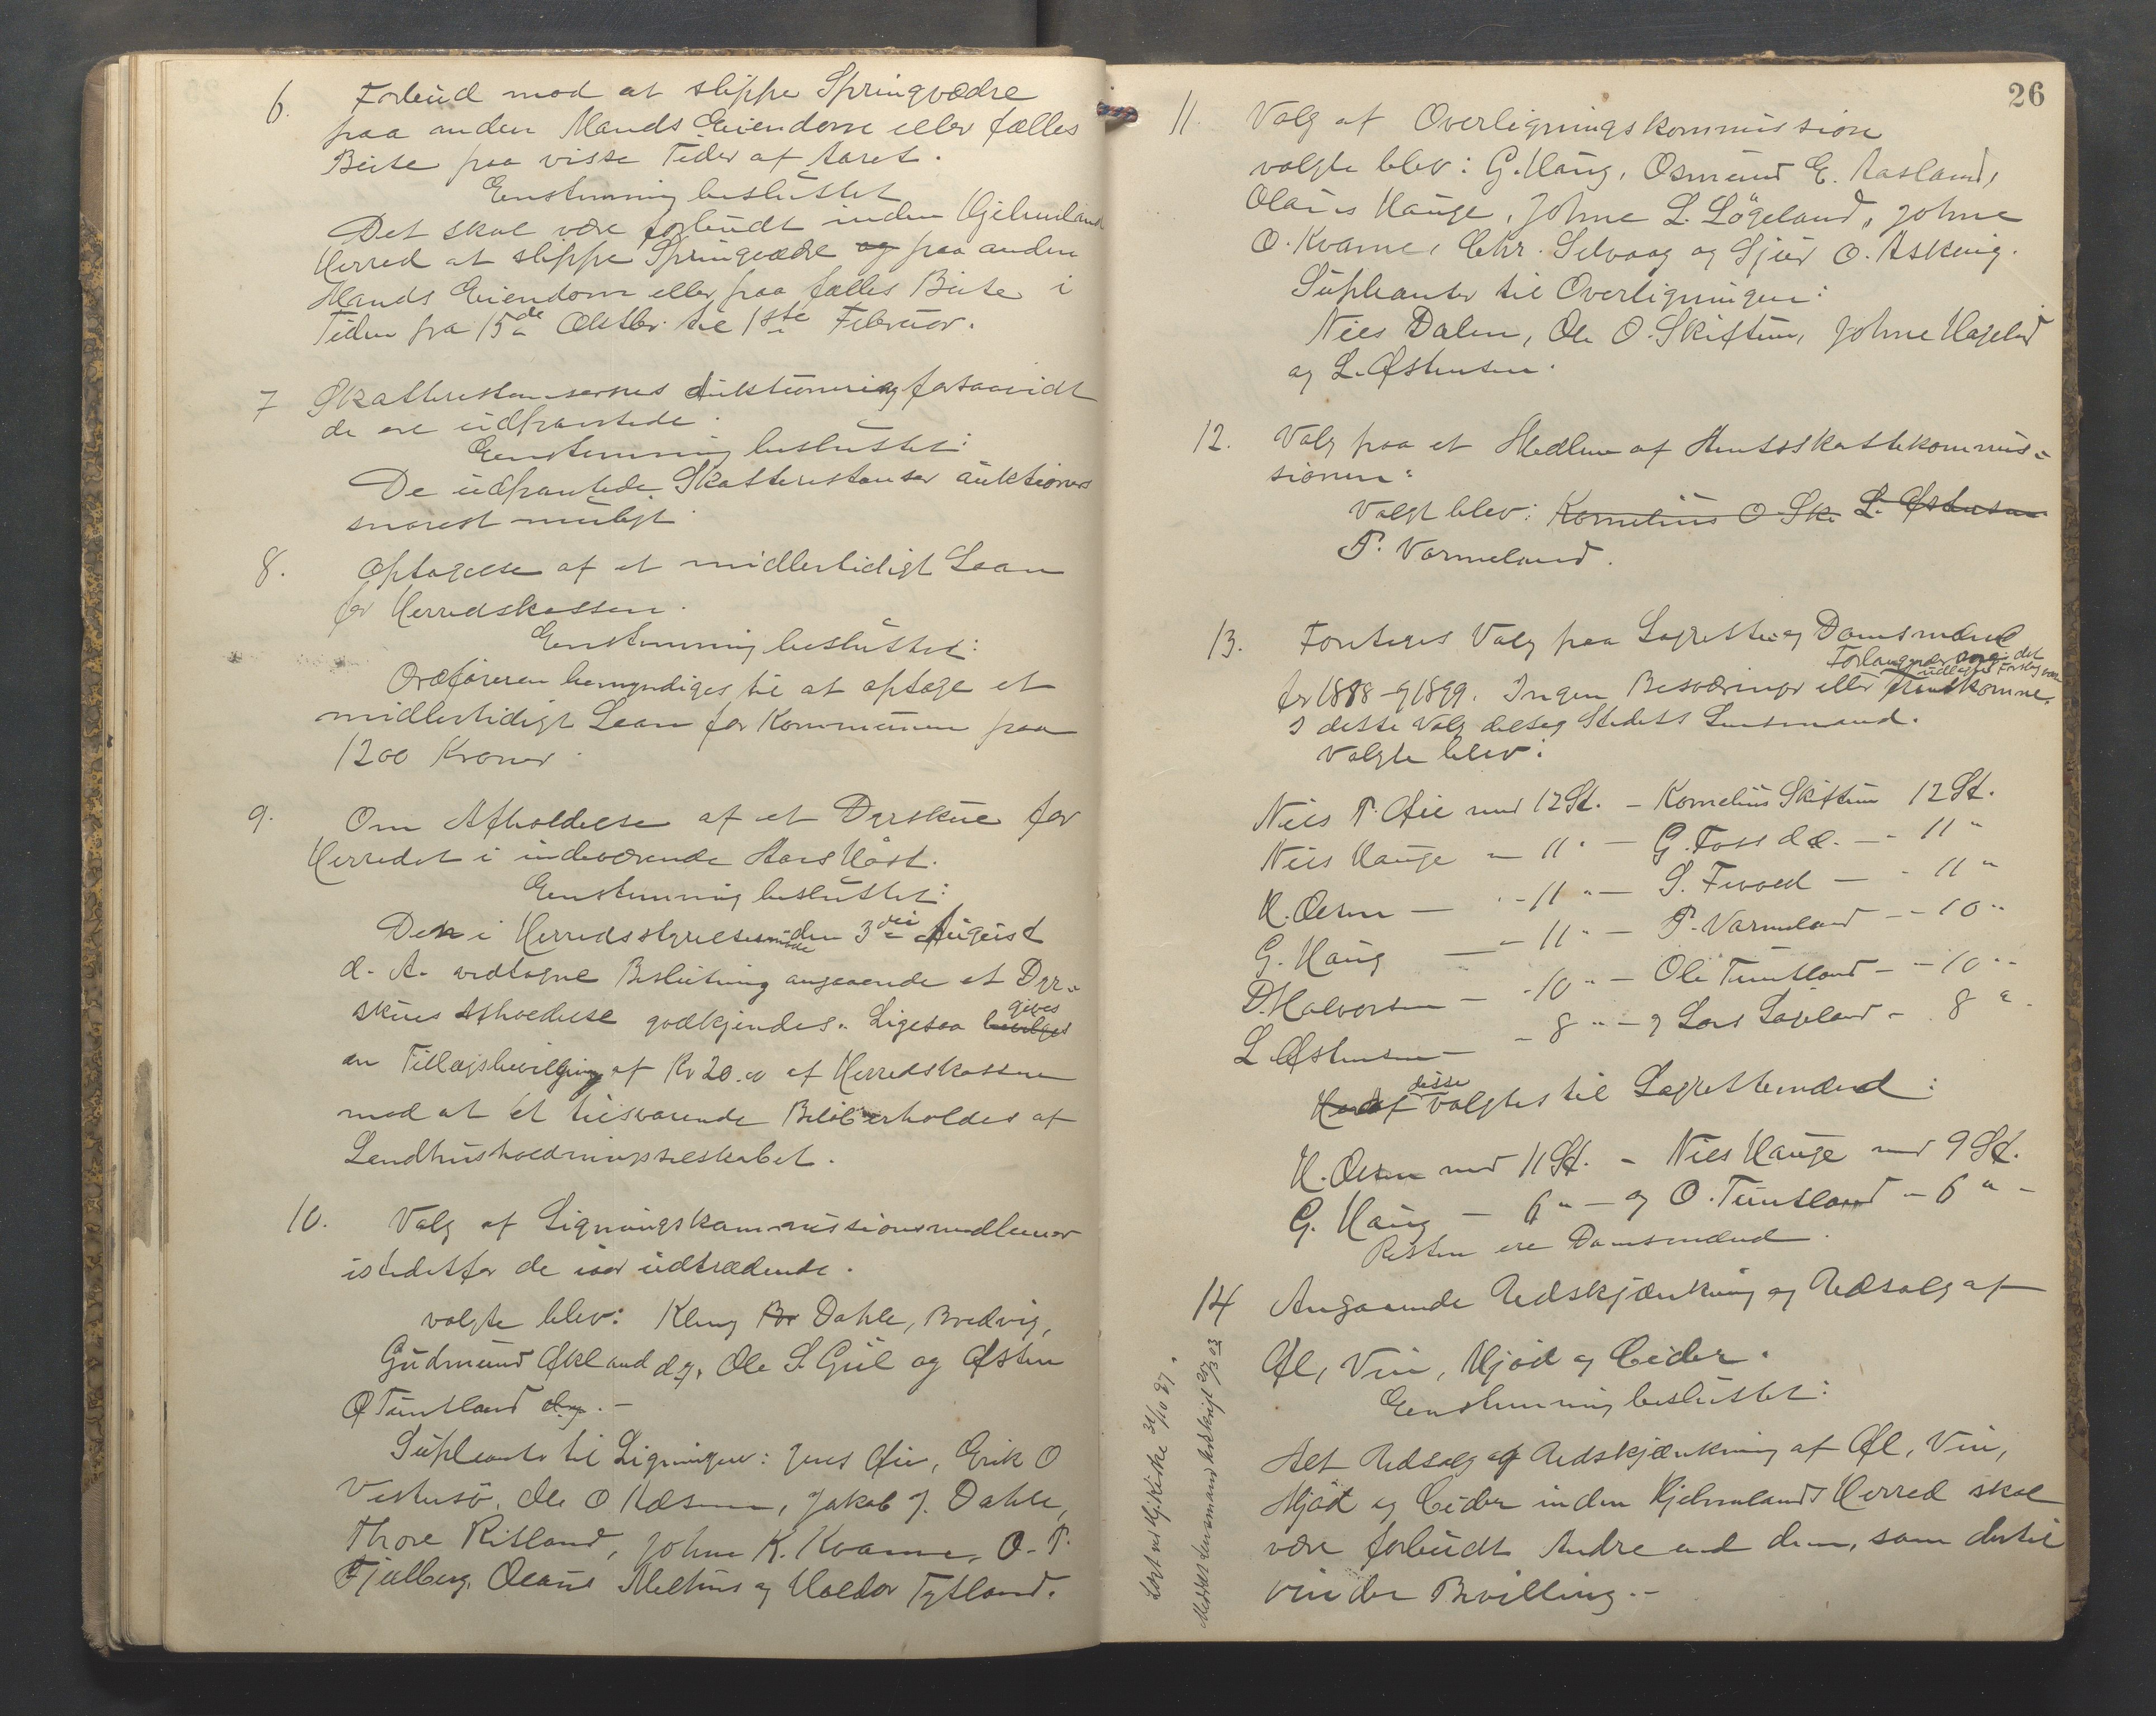 6. Forbud mod at slippe Springvædre
paa anden Mands Eiendom eller fælles
Beite paa visse Tider af Aaret.
Eenstemmig besluttet
Det skal være forbudt inden Hjelmelands
Herred at slippe Springvædre og paa anden
Mands Eiendom eller paa fælles Beite i
Tiden fra 15de Oktbr. til 1ste Februar.
7 Skatterestansernes Auktionering forsaavidt
de ere udpantede.
Eenstemmig besluttet:
De udpantede Skatterestanser auktioneres
snarest muligt.
8. Optagelse af et midlertidigt Laan
for Herredskassen.
Eenstemmig besluttet:
Ordføreren bemyndiges til at optage et
midlertidigt Laan for Kommunen paa
1200 Kroner.
9. Om Afholdelse af et Dyrskue for
Herredet i indeværende Aars Høst.
Eenstemmig besluttet:
Den i Herredsstyrelsesmøde den 3die August
d. A. vedtagne Beslutning angaaende et Dyr-
skues Afholdelse godkjendes. Ligesaa bevilges gives
en Tillægsbevilgning af Kr 20.00 af Herredskassen
mod at et tilsvarende Beløb erholdes af
Landhusholdningsselskabet.
10. Valg af Ligningskommissionsmedlemmer
istedetfor de iaar udtrædende.
valgte blev: Kleng Br Dahle, Bredvig,
Gudmund Økland d.y., Ole S. Giil og Østen
O Tuntland d.y. -
Supleanter til Ligningen: Jens Øie, Erik O
Vestersø, Ole O. Næsen, Jakob J. Dahle,
Thore Ritland, Johne K. Kvame, O. T.
Fjelberg, Olaus Melhus og Haldor Tytland.
26
11. Valg af Overligningskommission
valgte blev: G. Haug, Osmund E. Aasland,
Olaus Hauge, Johne L. Løgeland, Johne
O. Kvame, Chr. Selvaag og Sjur O. Askvig.
Supleanter til Overligningen:
Niels Dalen, Ole O. Skiftun, Johne Hagelid
og L. Østensen.
12. Valg paa et Medlem af Amtsskattekommis-
sionen:
Valgt blev: Kornelius O Sk. L. Østensen
P. Vormeland.
13. Foretages Valg paa Lagrette- og Domsmænd
for 1888 og 1899. Ingen Besværinger eller Forlangender mod det udlagte Forslag var fremkomne.
I dette Valg deltog Stedets Lensmand.
Valgte blev:
Niels P. Øie med 12 St. - Kornelius Skiftun 12 St.
Niels Hauge - 11 " - G. Foss d.æ. - - 11 "
H. Olsen - " - 11 " - S. Fevold - - 11 "
G. Haug - - 11 " - P. Vormeland - - 10 "
D. Halvorsen - - 10 " - Ole Tuntland - - 10 "
L. Østensen - - 8 " - og Lars Løgeland - 8 " -
Heraf disse valgtes til Lagrettemænd:
H. Olsen med 11 St. - Niels Hauge med 9 St.
G. Haug - 6 " - og O. Tuntland - 6 " -
Resten ere Domsmænd.
14 Angaaende Udskjænkning og Udsalg af
Øl, Vin, Mjød og Cider.
Eenstemmig besluttet:
Alt Udsalg og Udskjænkning af Øl, Vin,
Mjød og Cider inden Hjelmelands Herred skal
være forbudt Andre end dem, som dertil
vinder Bevilling. -
Læst ved Hj. Kirke 31/10 87.
Meddelt Lensmand Udskrift 20/3 03